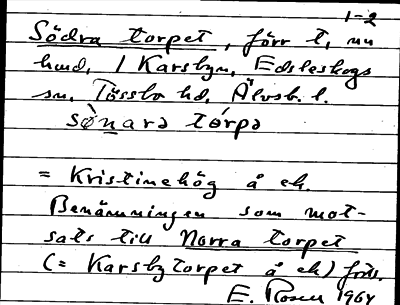 1-2
Södra torpet, förr t, nu
hmd, i Karsbyn, Edsleskogs
sn, Tössbo hd, Älvsb. l.
sø̀narə tórpə
= Kristinehög å ek.
Benämningen som mot-
sats till Norra torpet
(= Karsbytorpet å ek)
E. Rosén 1964